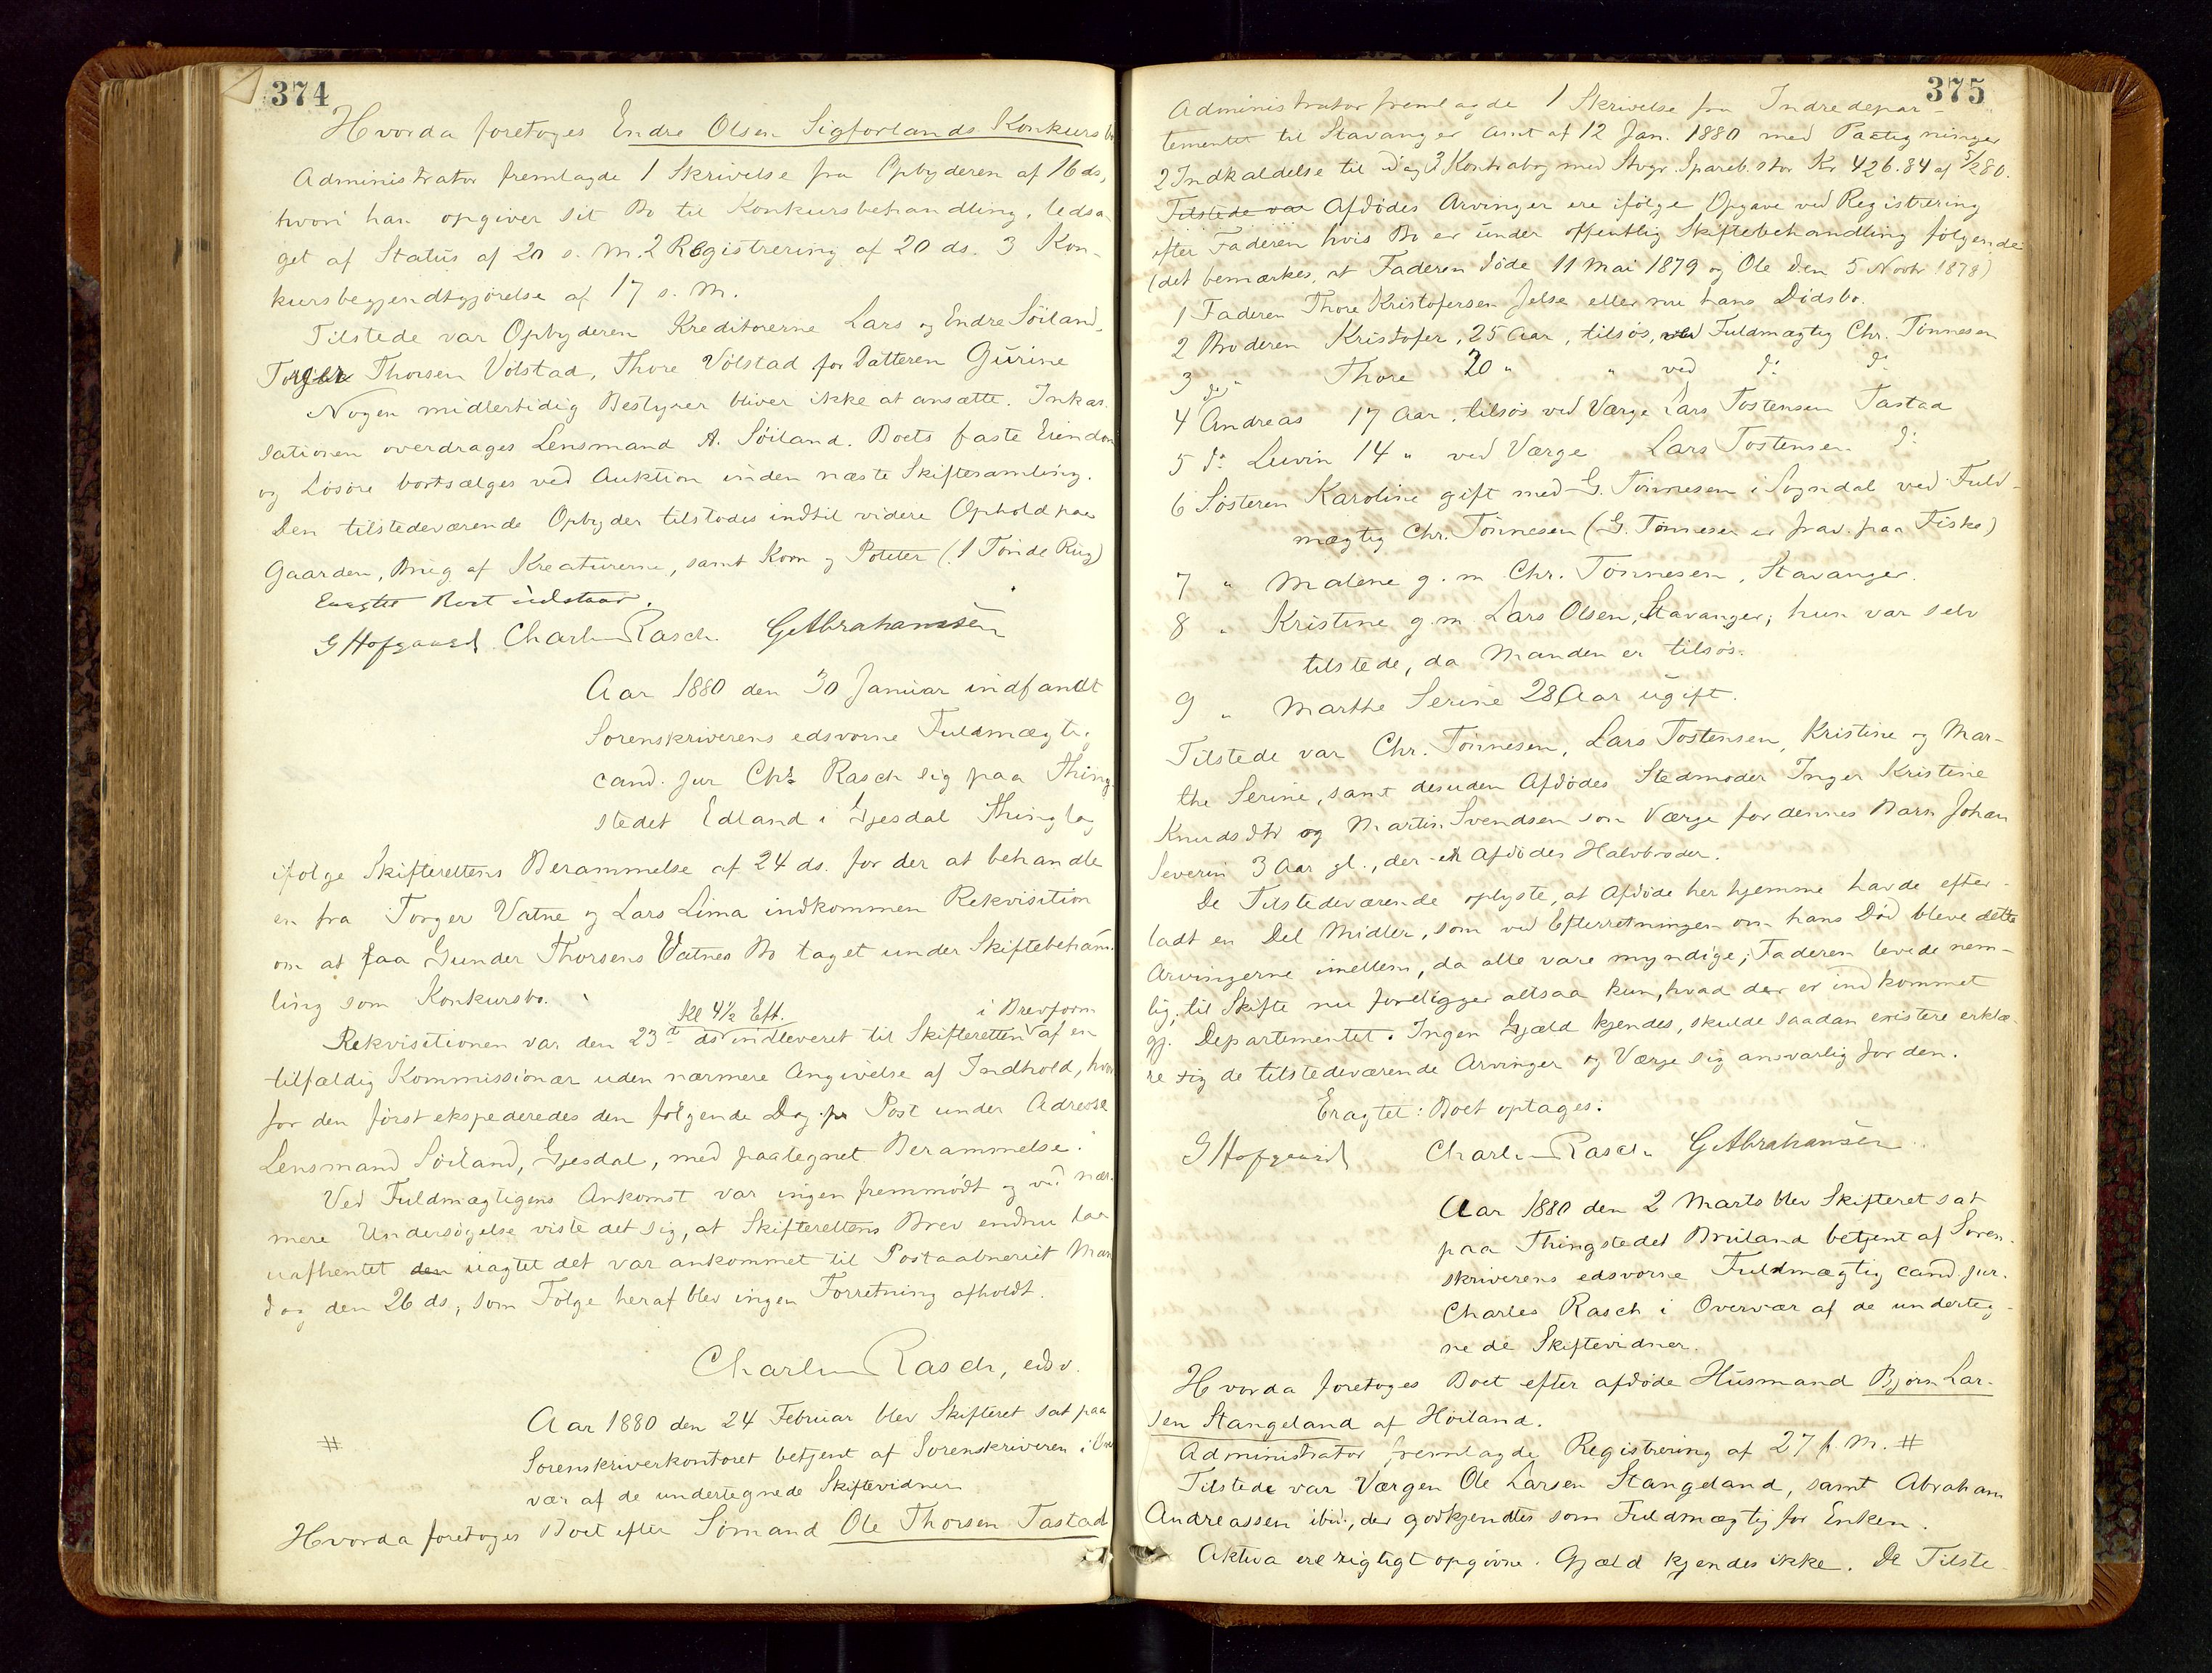 374
Hvorda foretoges Endre Olsen Sigforlands Konkursbo
Administrator fremlagde 1 Skrivelse fra Opbyderen af 16 ds,
hvori han opgiver sit Bo til Konkursbehandling, ledsa-
get af Status af 20 s. M. 2 Registrering af 20 ds. 3 Kon-
kursbegjendtgjørelse af 17 s. M.
Tilstede var Opbyderen Kreditorerne Lars og Endre Söiland,
Torger Thorsen Völstad, Thore Völstad for Datteren Gurine
Nogen midlertidig Bestyrer bliver ikke at ansætte. Inkas-
sationen overdrages Lensmand A. Söiland. Boets faste Eiendom
og Lösöre bortsælges ved Auktion inden næste Skiftesamling.
Den tilstedeværende Opbyder tilstodes indtil videre Ophold paa
Gaarden, Brug af Kreaturerne, samt Korn og Poteter (1 Tönde Rug)
Eragtet Boet udstaar.
G Hofgaard. Charles Rasch. G Abrahamsen
Aar 1880 den 30 Januar indfandt
Sorenskriverens edsvorne Fuldmægtig
cand. jur Chs Rasch sig paa Thing-
stedet Edland i Gjesdal Thinglag
ifölge Skifterettens Berammelse af 24 ds. for der at behandle
en fra Torger Vatne og Lars Lima indkommen Rekvisition
om at faa Gunder Thorsens Vatnes Bo taget under Skiftebehand-
ling som Konkursbo.
Kl 4½ Eft. i Brevform
Rekvisitionen var den 23de ds indleveret til Skifteretten af en
tilfældig Kommissionær uden nærmere Angivelse af Indhold, hvor-
for den först ekspederedes den fölgende Dag pr Post under Adresse
Lensmand Söiland, Gjesdal, med paategnet Berammelse.
Ved Fuldmægtigens Ankomst var ingen fremmödt og ved nær-
mere Undersögelse viste det sig, at Skifterettens Brev endnu laa
uafhentet den uagtet det var ankommet til Postaabneriet Man-
dag den 26 ds, som Fölge heraf blev ingen Forretning afholdt.
Charles Rasch, edsv.
Aar 1880 den 24 Februar blev Skifteret sat paa
# Sorenskriverkontoret betjent af Sorenskriveren i Over-
vær af de undertegnede Skiftevidner
Hvorda foretoges Boet efter Sömand Ole Thorsen Tastad
375
Administrator fremlagde 1 Skrivelse fra Indredepar-
tementet til Stavanger Amt af 12 Jan. 1880 med Paategninger
2 Indkaldelse til idag 3 Kontrabog med Stvgr. Spareb. stor Kr 426.84 af 5/2 80.
Tilstede var Afdödes Arvinger ere ifölge Opgave ved Registrering
efter Faderen hvis Bo er under offentlig Skiftebehandling fölgende
(det bemærkes, at Faderen döde 11 Mai 1879 og Ole den 5 Novbr 1878)
1 Faderen Thore Kristofersen Jelse eller nu hans Dödsbo.
2 Broderen Kristofer, 25 Aar, tilsös, ved Fuldmægtig Chr. Tönnesen
3 do Thore 20 " " ved do do
4 Andreas 17 Aar, tilsös ved Værge Lars Tostensen Tastad
5 do Luvin 14 " ved Værge Lars Tostensen do
6 Sösteren Karoline gift med G. Tönnesen i Sogndal ved Fuld-
mægtig Chr. Tönnesen (G. Tönnesen er frav. paa Fiske)
7 " Malene g. m Chr. Tönnesen, Stavanger.
8 " Kristine g. m. Lars Olsen, Stavanger; hun var selv
tilstede, da Manden er tilsös.
9 " Marthe Serine 28 Aar ugift.
Tilstede var Chr. Tönnesen, Lars Tostensen, Kristine og Mar-
the Serine, samt desuden Afdödes Stedmoder Inger Kristine
Knudsdtr og Martin Svendsen som Værge for dennes Barn Johan
Severin 3 Aar gl., der er Afdödes Halvbroder.
De Tilstedeværende oplyste, at Afdöde her hjemme havde efter-
ladt en Del Midler, som ved Efterretningen om hans Död bleve delte
Arvingerne imellem, da alle vare myndige; Faderen levede nem-
lig, til Skifte nu foreligger altsaa kun, hvad der er indkommet
gj. Departementet. Ingen Gjæld kjendes, skulde saadan existere erklæ-
re sig de tilstedeværende Arvinger og Værge sig ansvarlig for den.
Eragtet: Boet optages.
G Hofgaard Charles Rasch G Abrahamsen
Aar 1880 den 2 Marts blev Skifteret sat
paa Thingstedet Bruland betjent af Soren-
skriverens edsvorne Fuldmægtig cand. jur.
Charles Rasch i Overvær af de underteg-
nede Skiftevidner.
Hvorda foretoges Boet efter afdöde Husmand Björn Lar-
sen Stangeland af Höiland.
Administrator fremlagde Registrering af 27 f. M. #
Tilstede var Værgen Ole Larsen Stangeland, samt Abraham
Andreassen ibid., der godkjendtes som Fuldmægtig for Enken.
Aktiva ere rigtigt opgivne. Gjæld kjendes ikke. De Tilste-